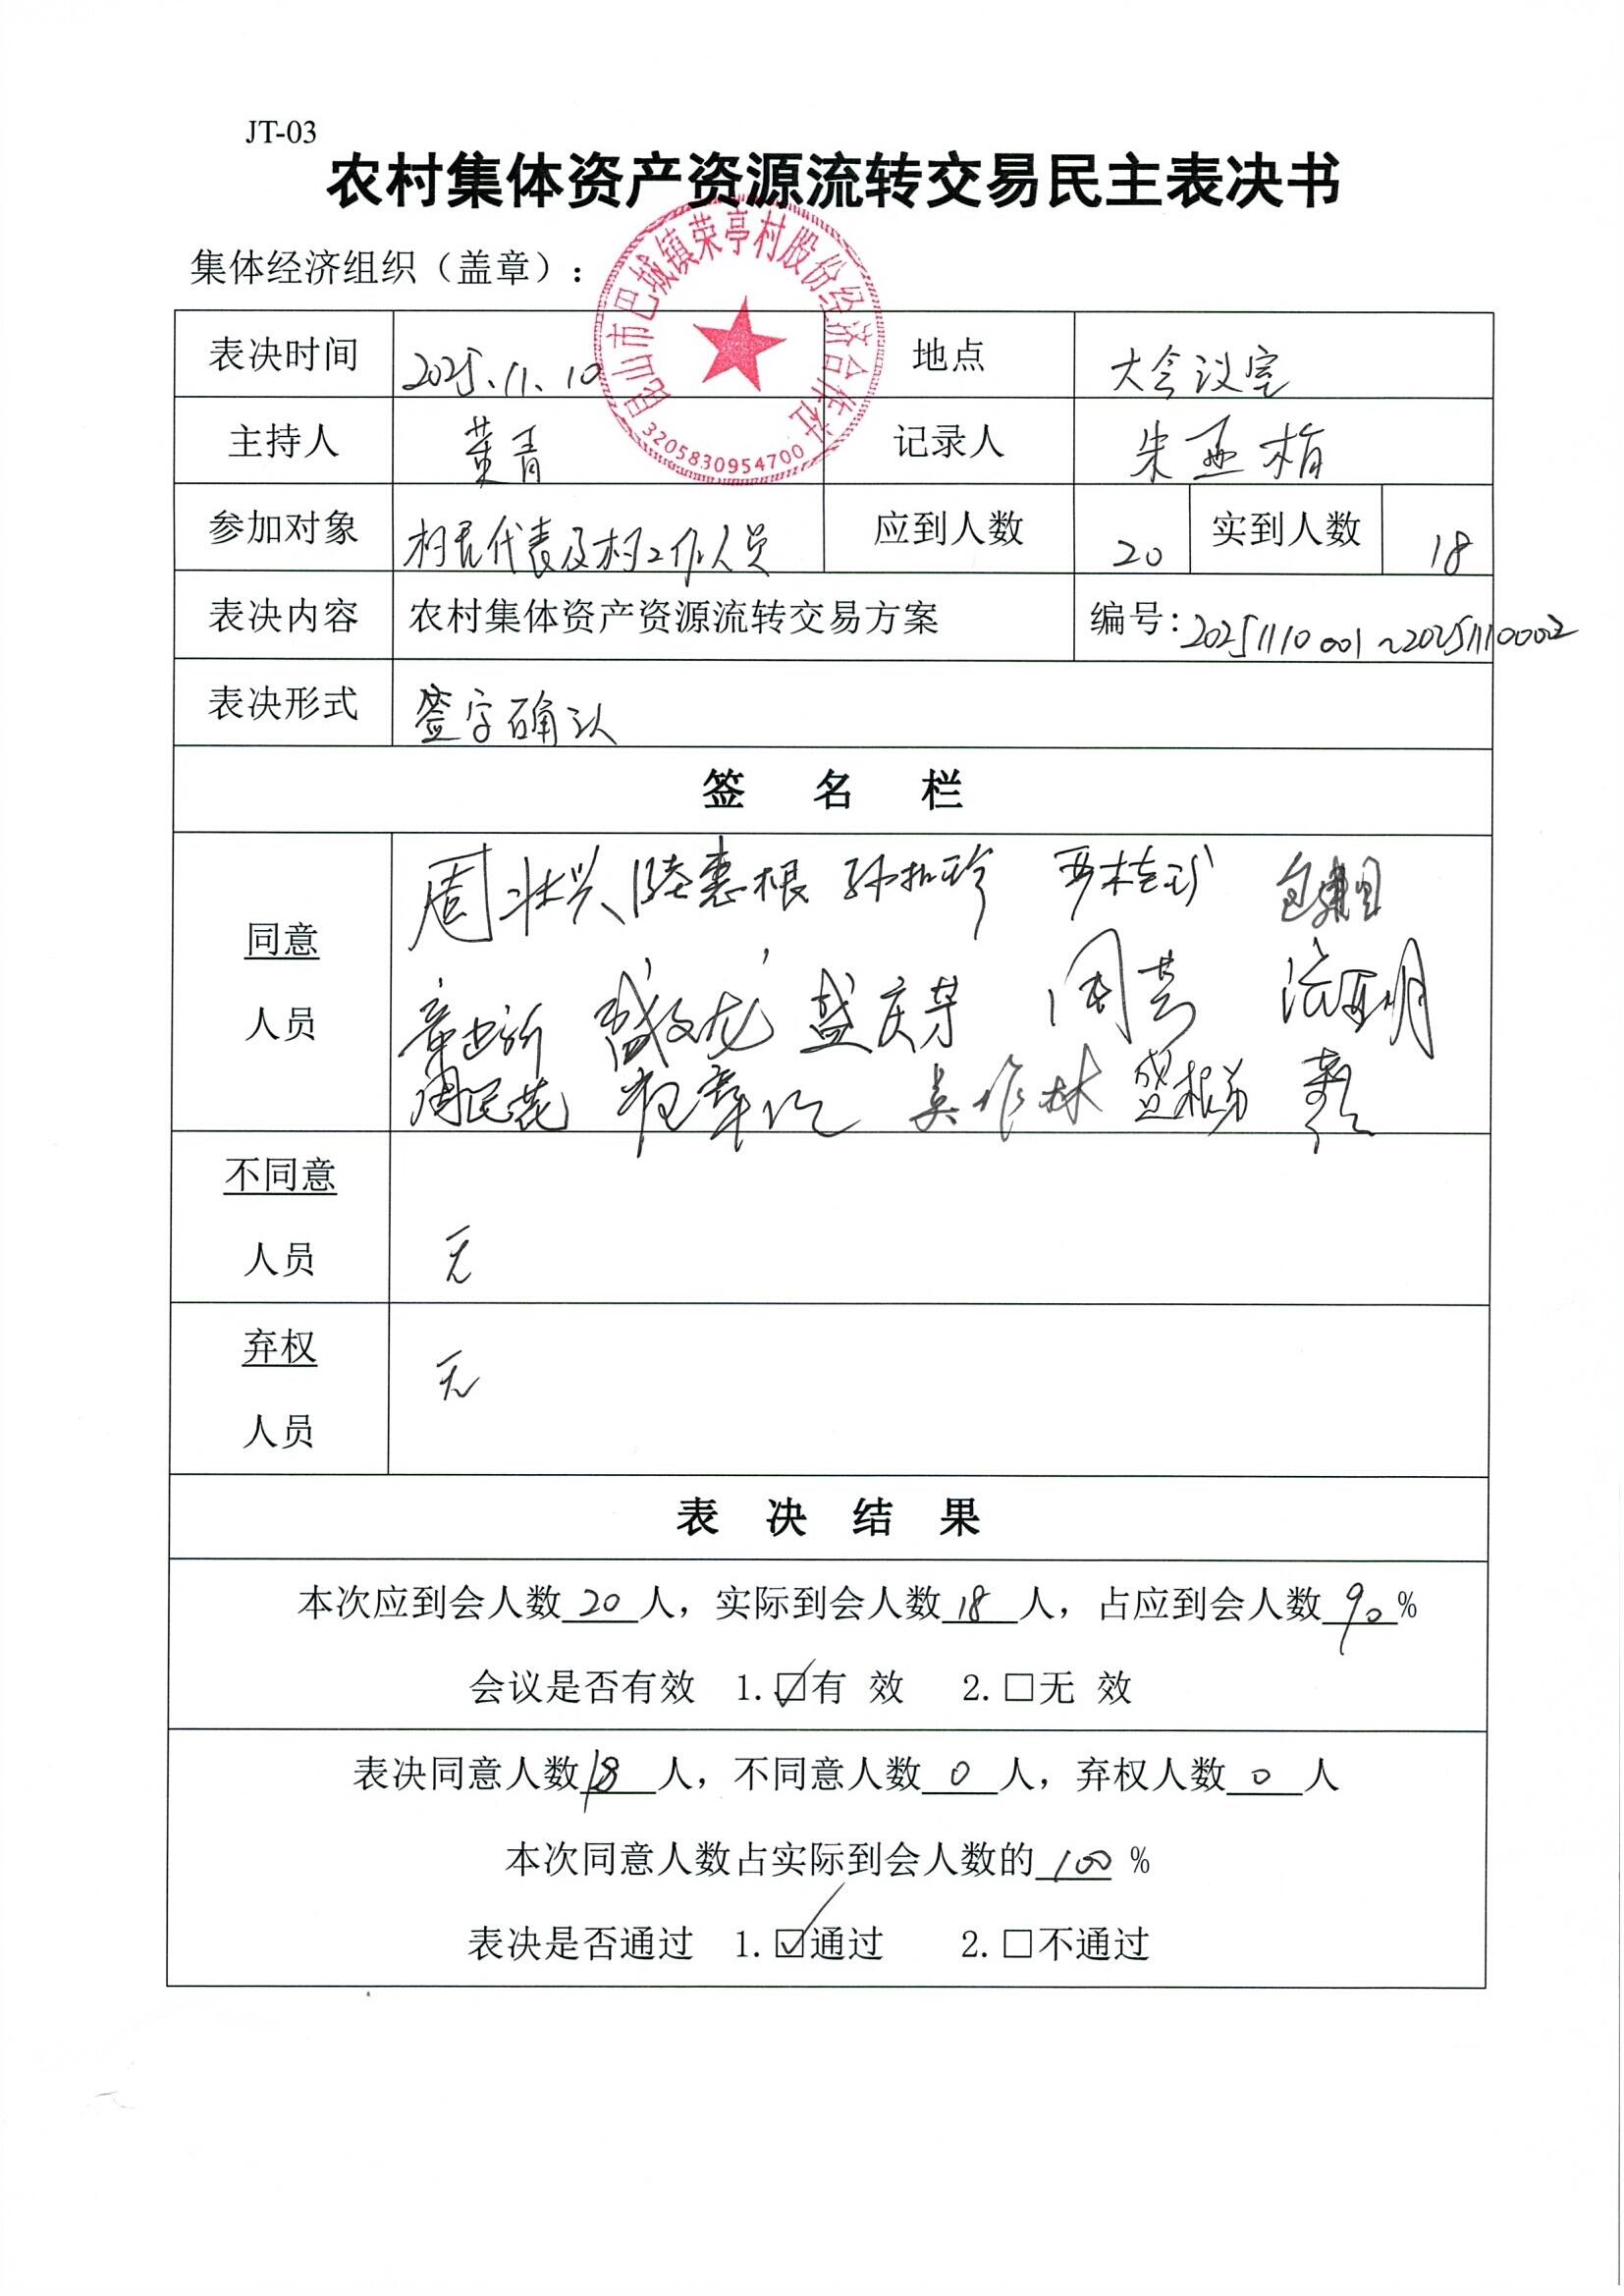 JT-03
农村集体资产资源流转交易民主表决书
集体经济组织（盖章）：
昆山市巴城镇荣亭村股份经济合作社
3205830954700
表决时间 2025.11.10 地点 大会议室
主持人 董青 记录人 朱亚梅
参加对象 村民代表及村工作人员 应到人数 20 实到人数 18
表决内容 农村集体资产资源流转交易方案 编号：20251110001~20251110002
表决形式 签字确认
签 名 栏
同意
人员
周壮兴 陆惠根 孙扣珍
盛文龙 盛庆芳 周芸
周民花 吴作林 盛根弟
不同意
人员 无
弃权 无
人员
表 决 结 果
本次应到会人数 20 人，实际到会人数 18 人，占应到会人数 90 %
会议是否有效 1.☑有 效 2.□无 效
表决同意人数 18 人，不同意人数 0 人，弃权人数 0 人
本次同意人数占实际到会人数的 100 %
表决是否通过 1.☑通过 2.□不通过